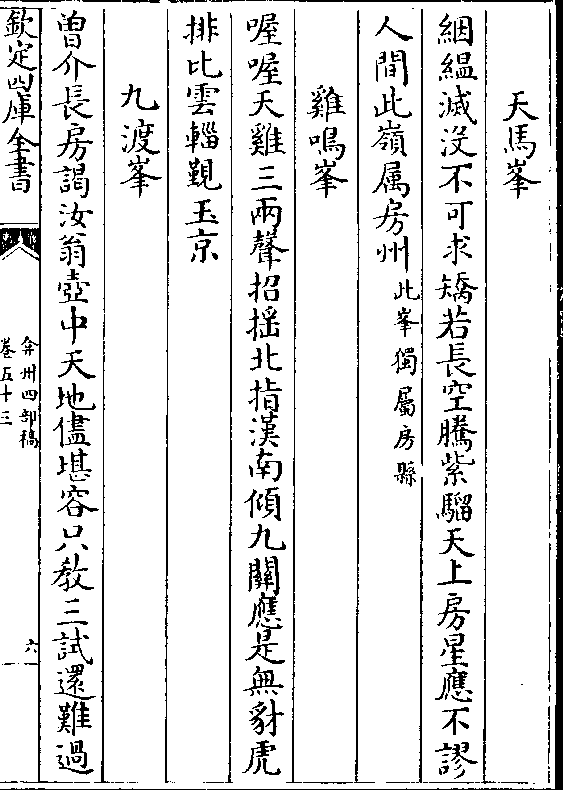 天馬峯
絪緼滅沒不可求矯若長空騰紫騮天上房星應不謬
人間此嶺属房州此峯獨屬房縣
雞鳴峯
喔喔天雞三兩聲招揺北指漢南傾九關應是無豺虎
排比雲輜覲玉京
九渡峯
曽介長房謁汝翁壺中天地儘堪容只教三試還難過
欽定四庫全書
弇州四部稿
卷五十三
六